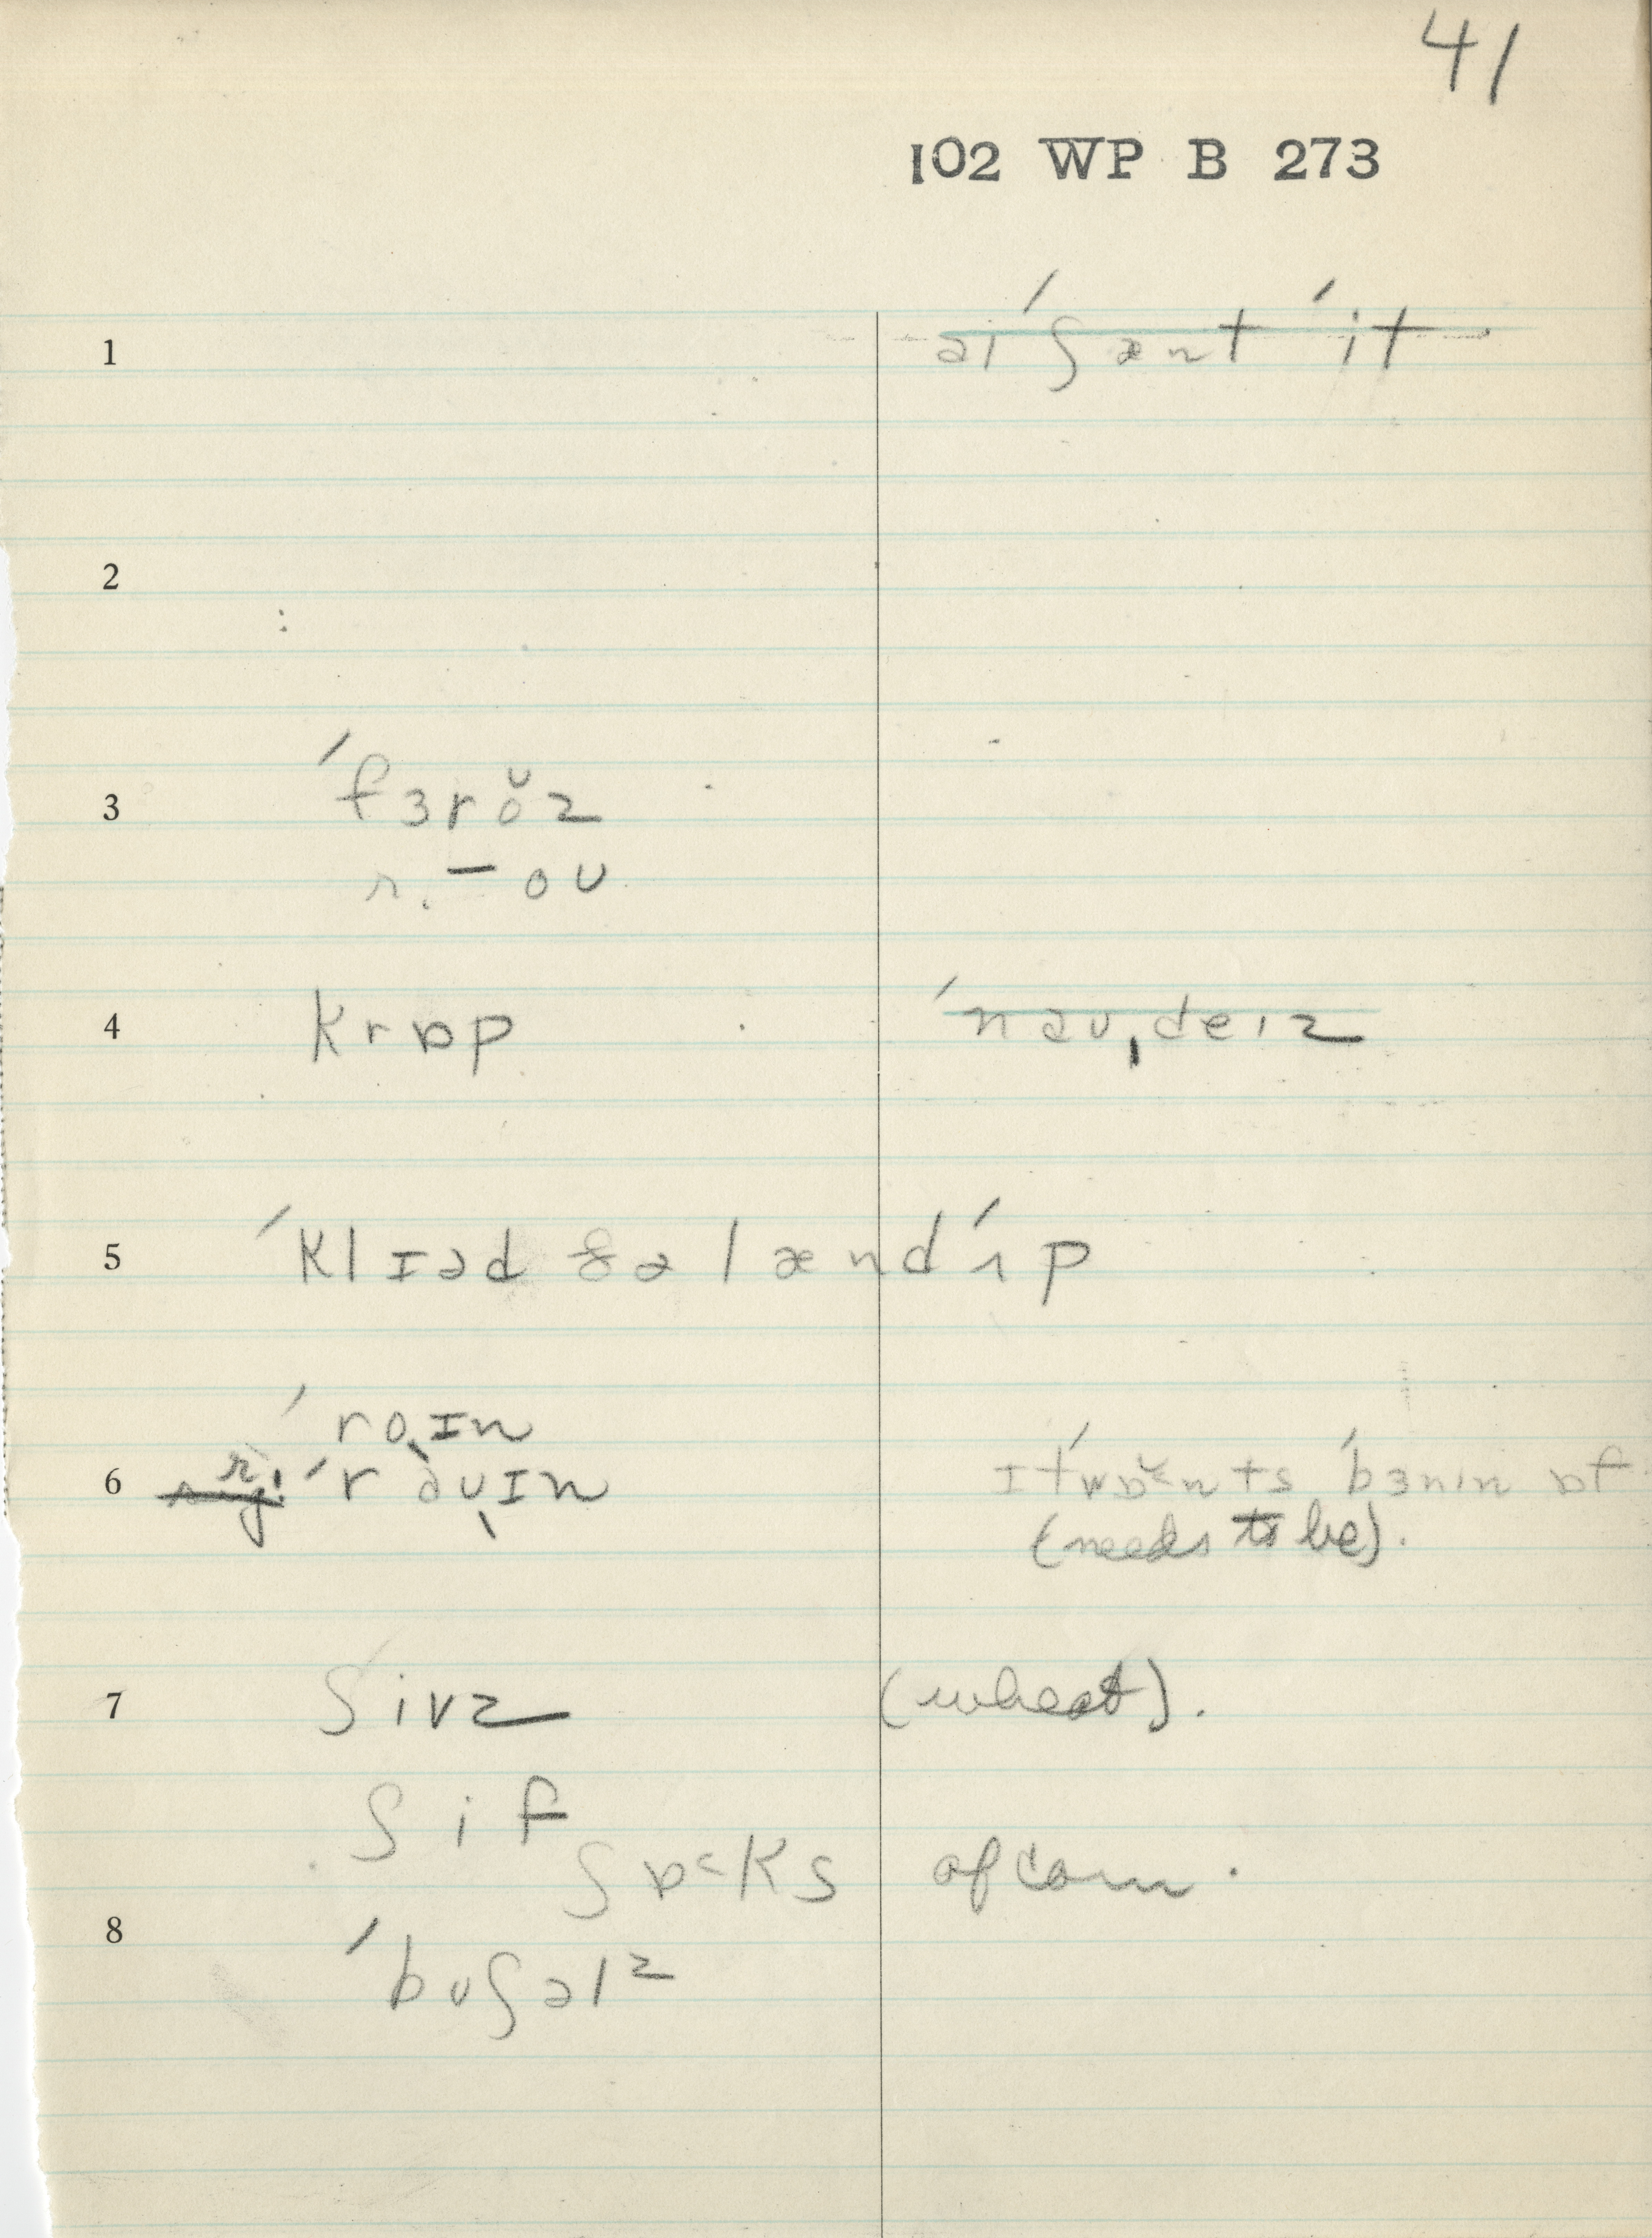 41
102 WP B 273
1 əi ˈʃænt ˈit
2
3 ˈfɜrŏz
r. – oʊ
4 krɒp ˈnəʊˌdeɪz
5 ˈklɪəd ðə lænd ˈʌp
ˈroˌɪn
6 r. ˈrəʊˌɪn ɪt ˈwɒˇnts ˈbɜnɪn ɒf
(needs to be).
7 ʃivz (wheat).
ʃif
ʃɒ˂ks of corn.
8 ˈbuʃəlz